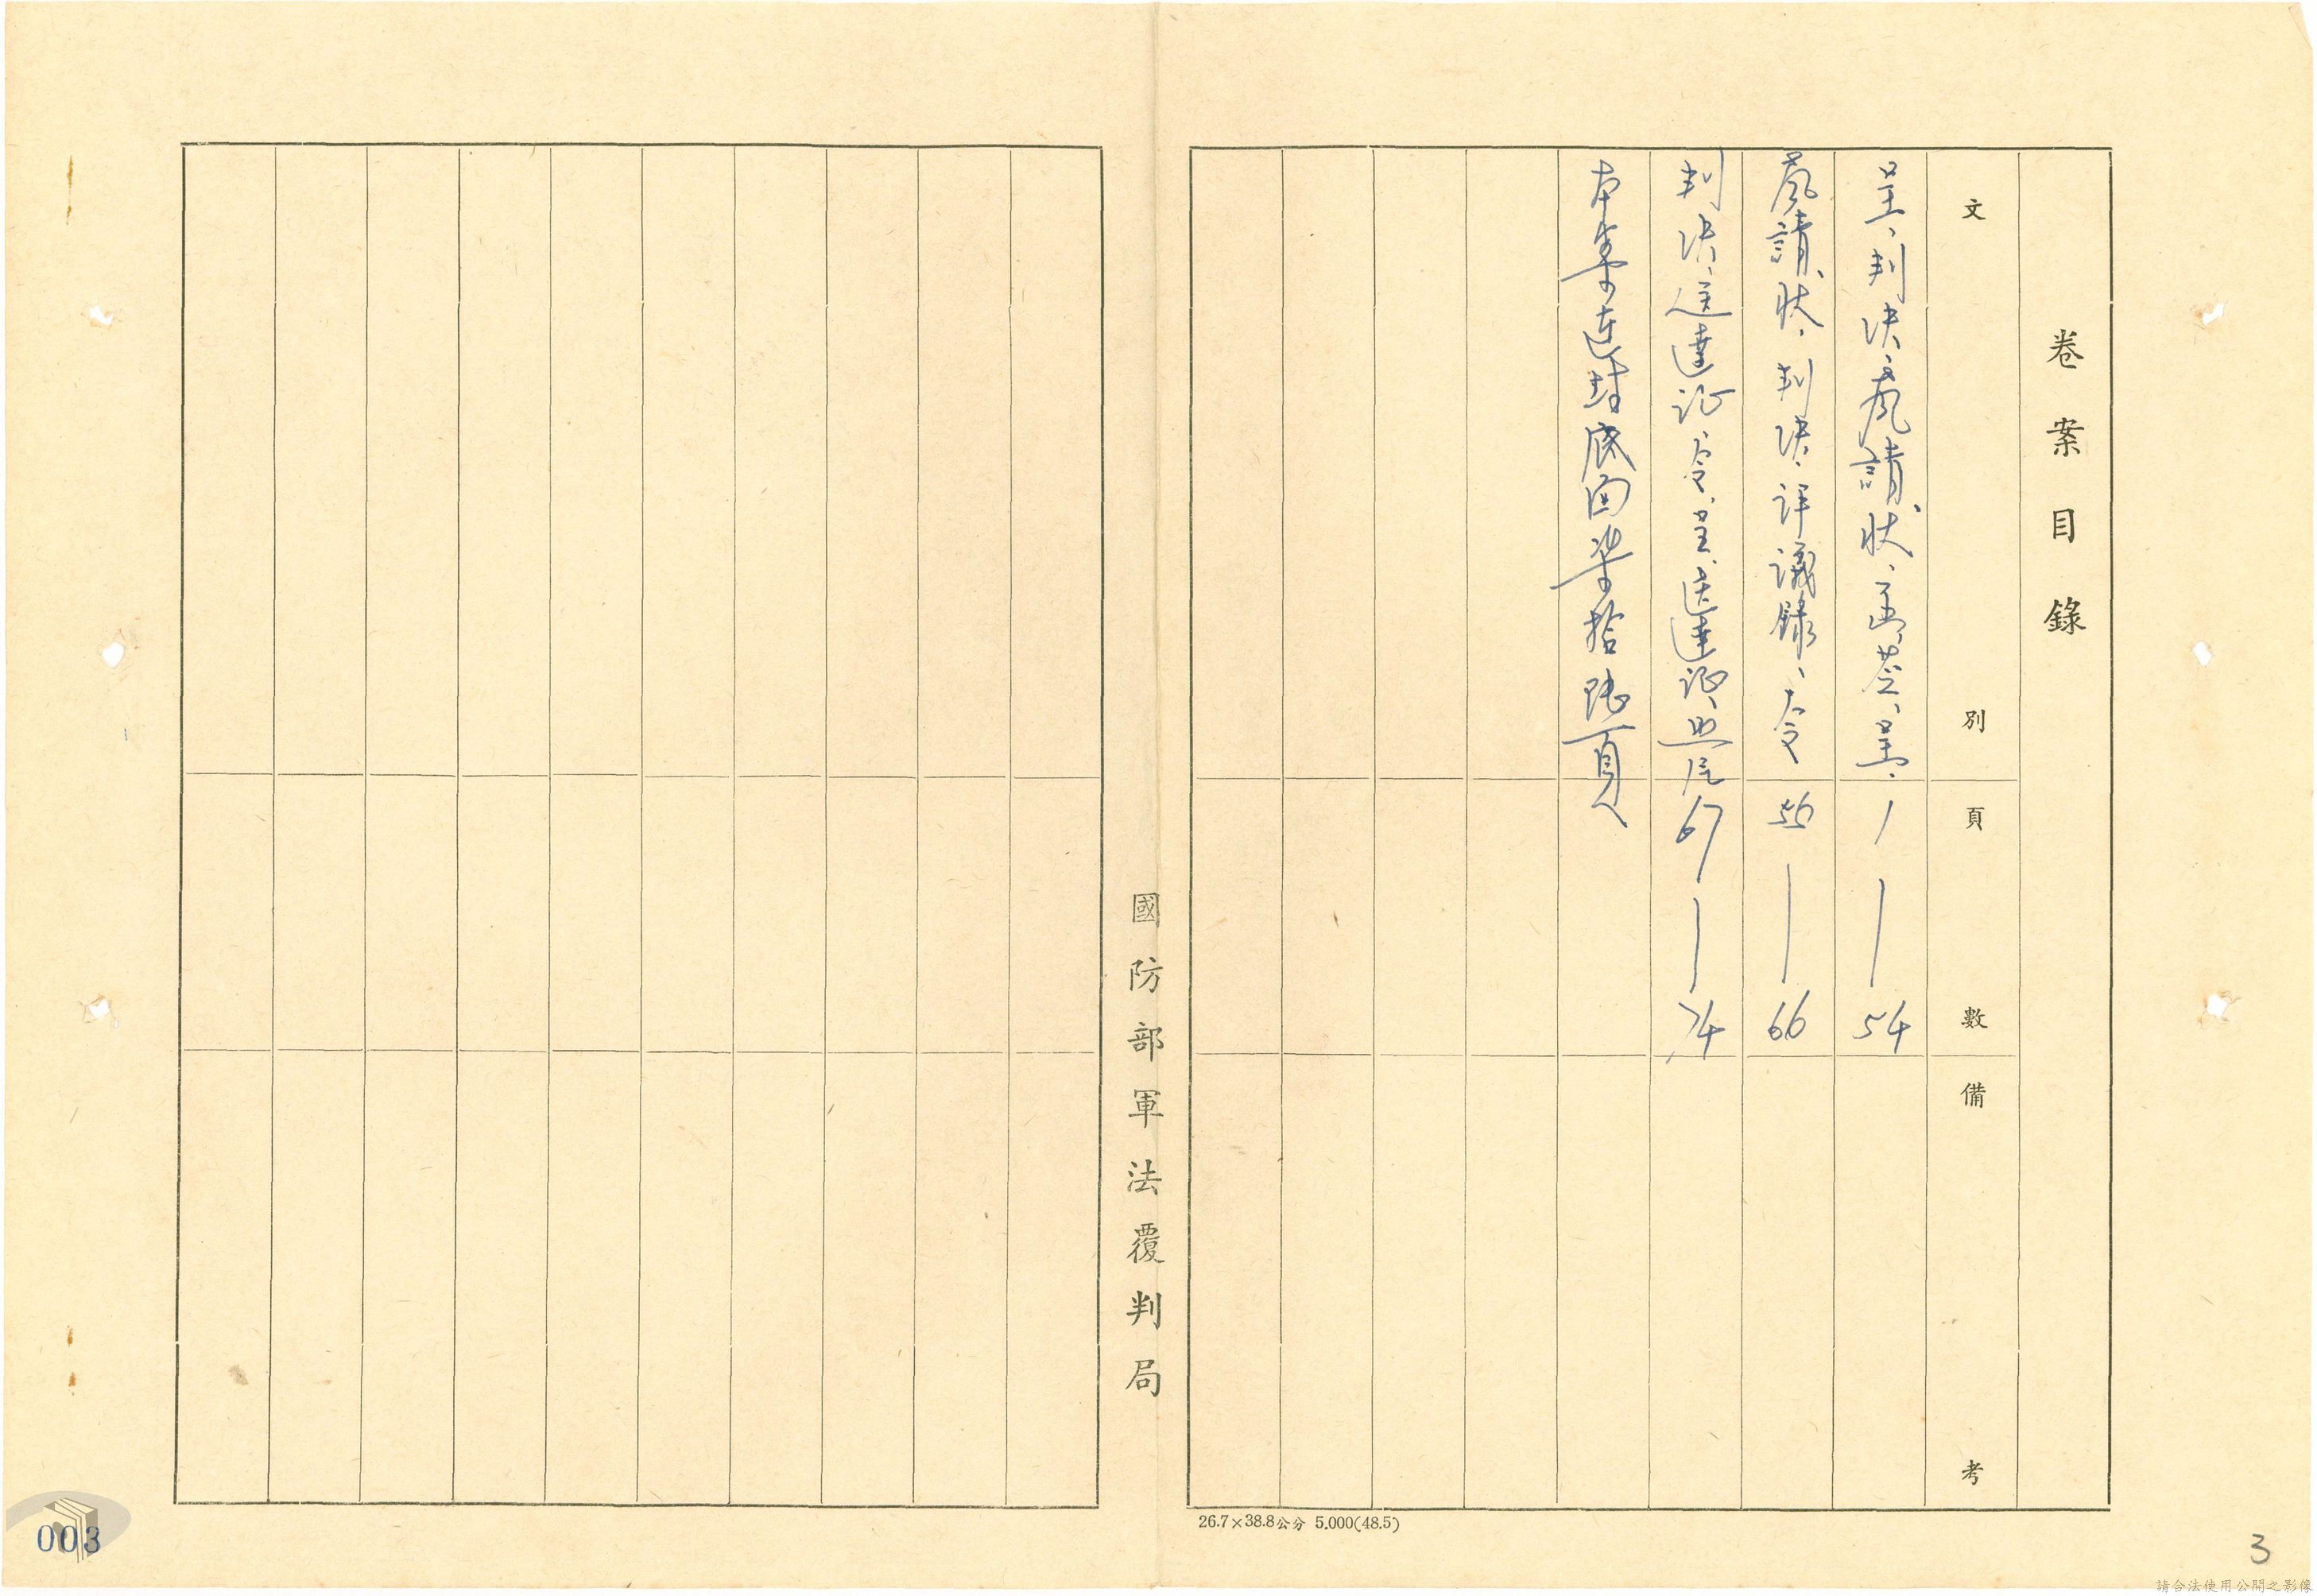 卷案目錄
文別 頁數 備考
呈、判決、聲請狀、函、簽、呈、 1—54
聲請狀、判決、評議錄、令 56—66
判決、送達証、令、呈、送達証、照片 67—74
本案連封底面柒拾陸頁
國防部軍法覆判局
26.7×38.8公分 5.000(48.5)
003
3
請合法使用公開之影像